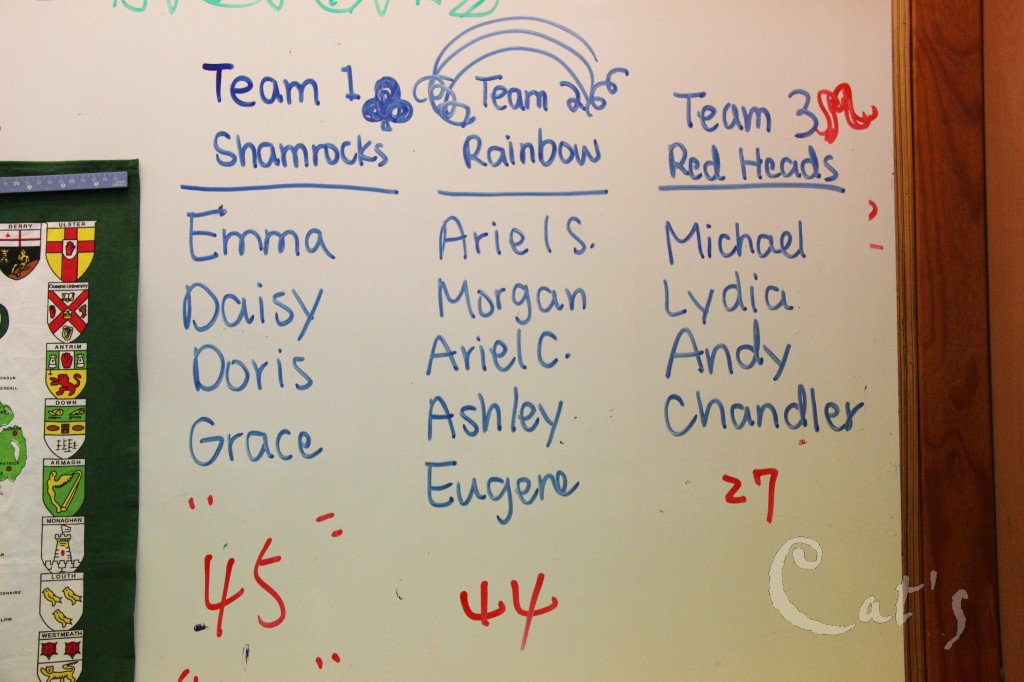 Team 1
Shamrocks
Emma
Daisy
Doris
Grace
45
Team 2
Rainbow
Ariel S.
Morgan
Ariel C.
Ashley
Eugene
44
Team 3
Red Heads
Michael
Lydia
Andy
Chandler
27
DERRY
ULSTER
Queens University
ANTRIM
DOWN
ARMAGH
MONAGHAN
LOUTH
WESTMEATH
Cat's